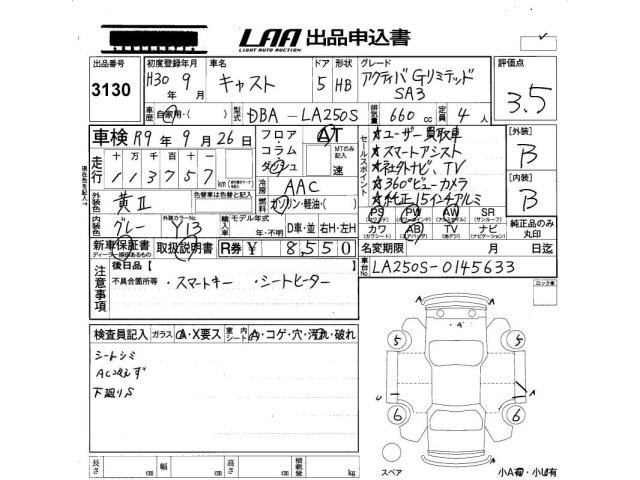 LAA 出品申込書
LIGHT AUTO AUCTION
出品番号 初度登録年月 車名 ドア 形状 グレード 評価点
3130 H30年 9月 キャスト 5 HB アクティバGリミテッド SA3 3.5
車歴 自家用・( ) 型式 DBA-LA250S 排気量 660 cc 定員 4 人
車検 R9年 9月 26日 フロア・コラム・ダッシュ AT セールスポイント ★ユーザー買取車 [外装]
MTのみ記入 速 ★スマートアシスト B
走行 十万千百十一 ★社外ナビ、TV
113757 km 冷房 AAC ★360°ビューカメラ [内装]
外装色 黄II 色替車は色替と記入 燃料 ガソリン・軽油・( ) ★純正15インチアルミ B
内装色 グレー 外装カラーNo. Y13 輸入車 モデル年式 年・不明 D車・並 右H・左H
PS PW AW SR
カワ AB TV ナビ 純正品のみ丸印
新車保証書 取扱説明書 R券 ¥ 8,550 名変期限 月 日迄
ディーラー捺印あるもの
車台No. LA250S-0145633
注意事項 後日品【 】
不具合箇所等 ・スマートキー ・シートヒーター
ロック車
検査員記入 ガラス A・X要ス 室内シート A・コゲ・穴・汚れ・破れ
シートシミ
AC冷えず
下廻りS
A
5 5
A
U A
6 6
A
スペア
小A有・小U有
長さ cm 幅 cm 高さ cm 積載量 kg